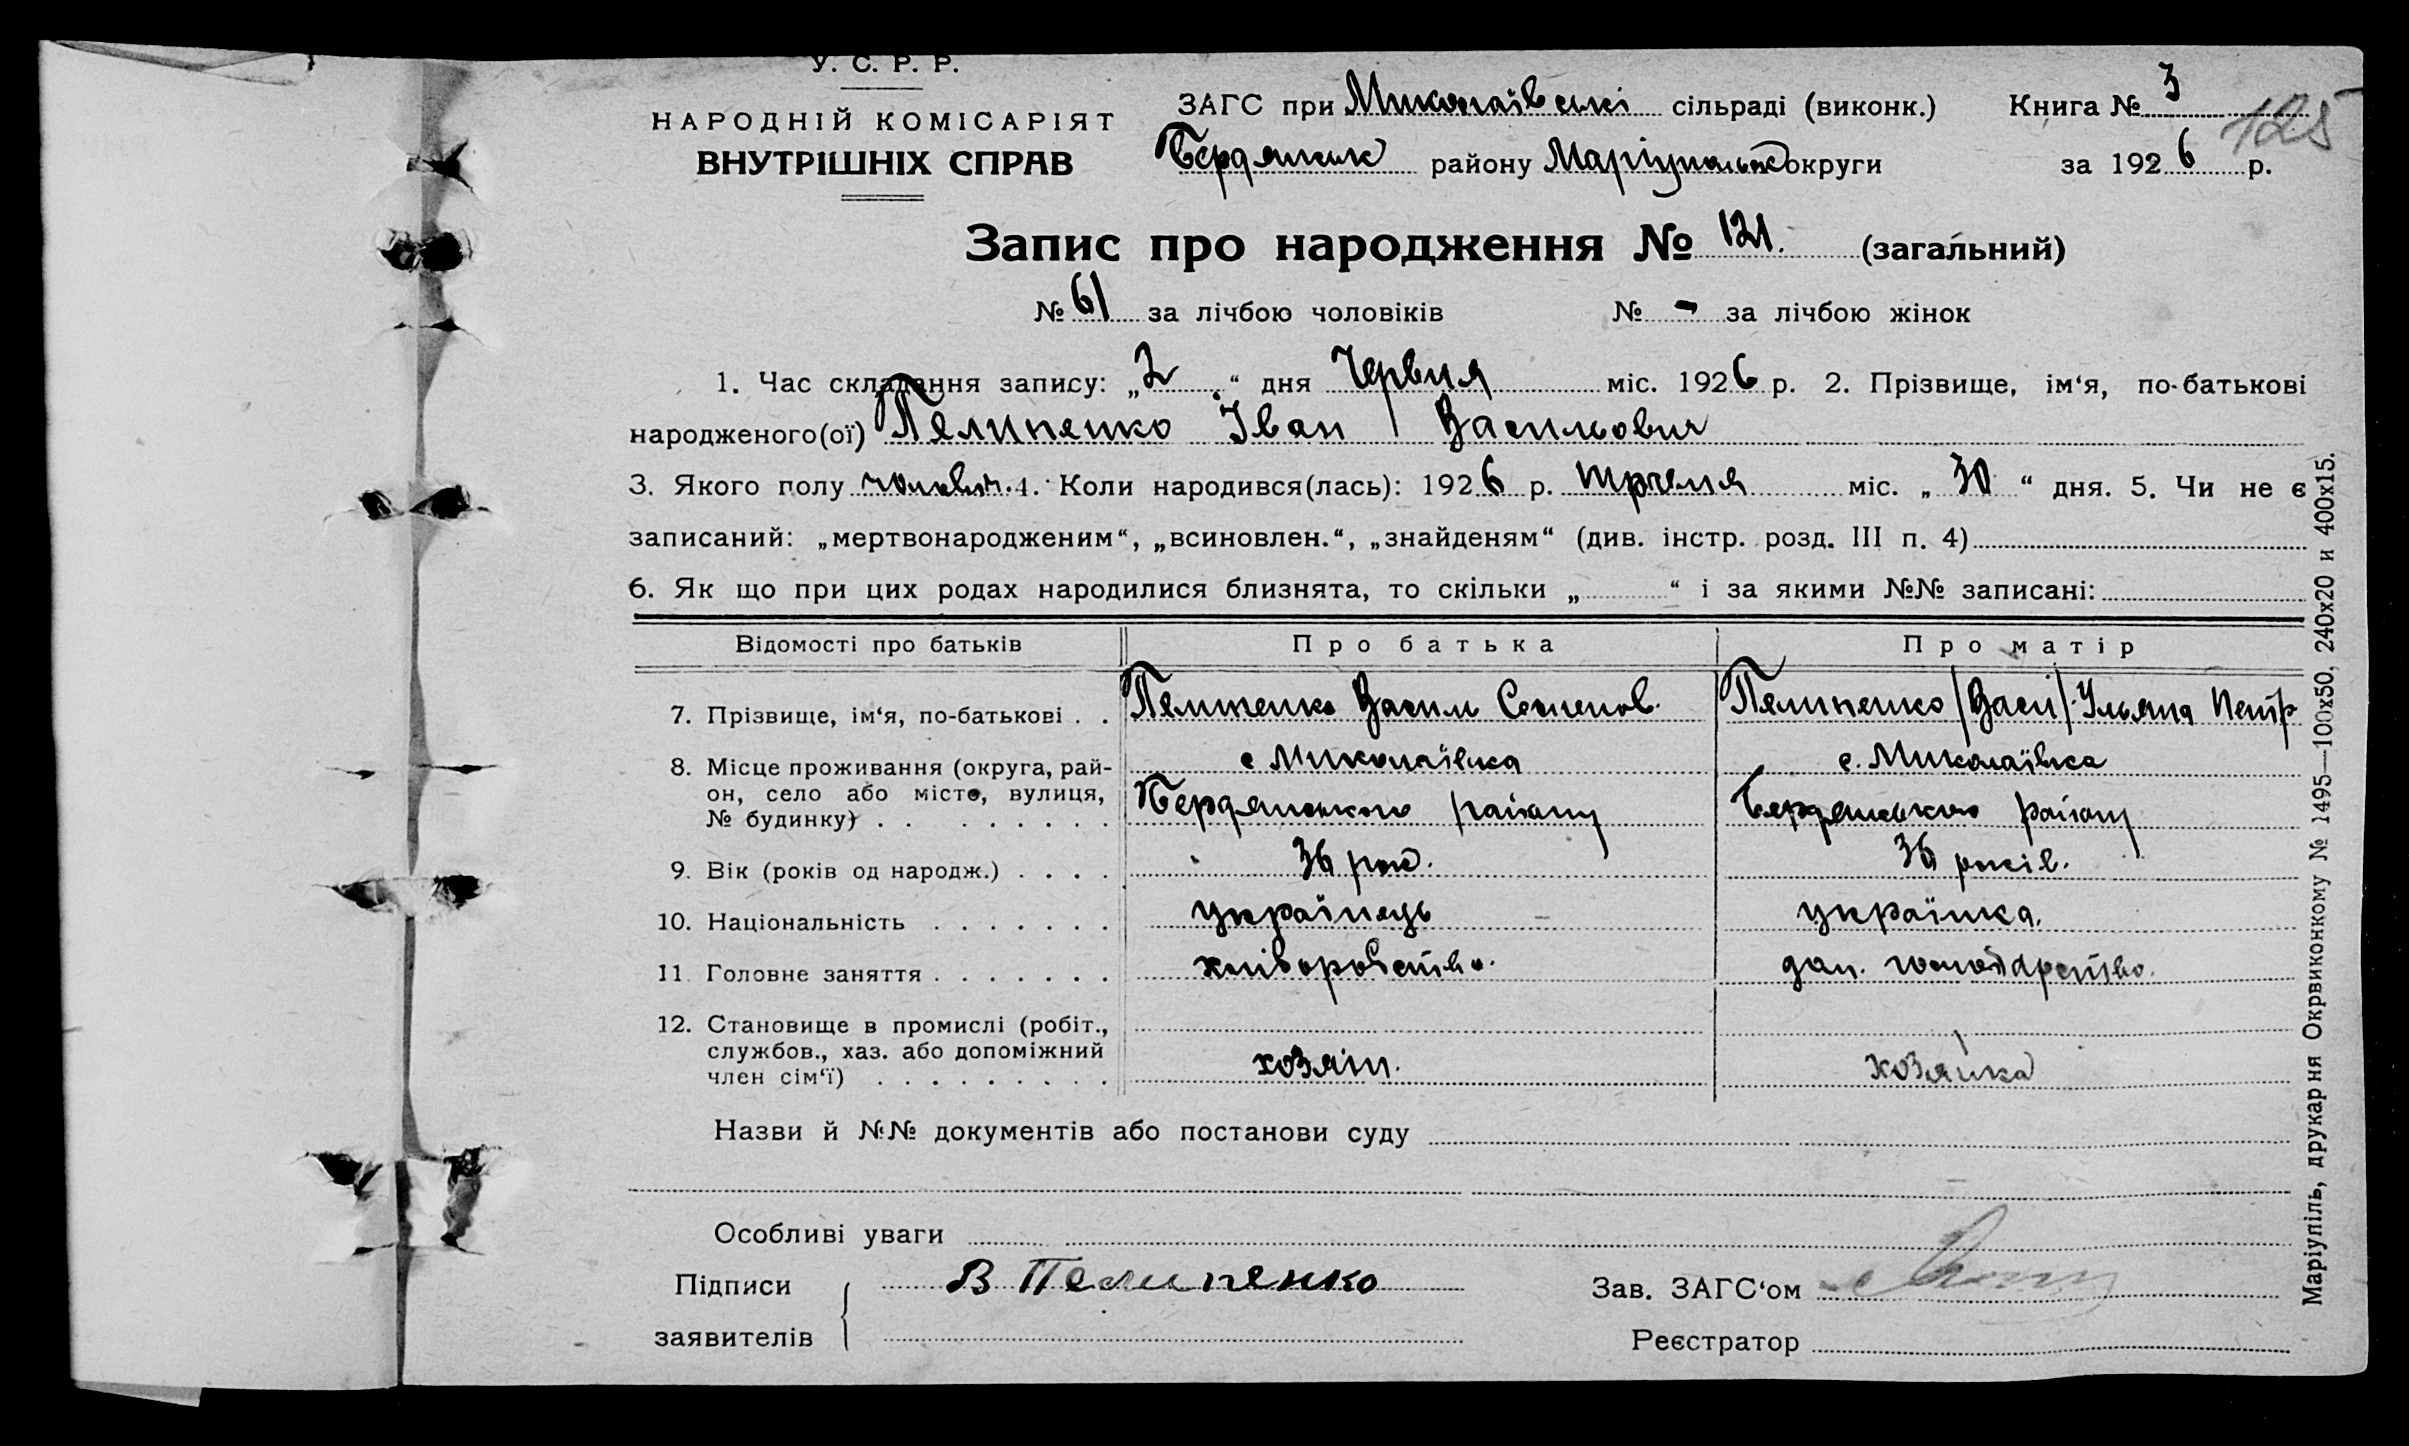 У. С. Р. Р.
НАРОДНІЙ КОМІСАРІЯТ
ВНУТРІШНІХ СПРАВ
ЗАГС при Миколаївські сільраді (виконк.) Книга № 3
125
Бердянськ району Маріупольськ округи за 1926 р.
Запис про народження № 121. (загальний)
№ 61 за лічбою чоловіків № - за лічбою жінок
1. Час складання запису: „2“ дня Червня міс. 1926 р. 2. Прізвище, ім‘я, по-батькові
народженого(ої) Пелипенко Іван Васильович
3. Якого полу чоловіч. 4. Коли народився(лась): 1926 р. міс. „30“ дня. 5. Чи не є
записаний: „мертвонародженим“, „всиновлен.“, „знайденям“ (див. інстр. розд. III п. 4)
6. Як що при цих родах народилися близнята, то скільки „ “ і за якими №№ записані:
Відомості про батьків Про батька Про матір
7. Прізвище, ім‘я, по-батькові . . Пелипенко Василь Семенов. Пелипенко /Васи/. Ульяна Петр
8. Місце проживання (округа, рай-
он, село або місто, вулиця,
№ будинку) . . . . . . . . .
с Миколаївка
Бердянського району
с. Миколаївка
Бердянського району
9. Вік (років од народж.) . . . . 36 рок. 36 років.
10. Національність . . . . . . . українець українка.
11. Головне заняття . . . . . . . хліборобство. дом. господарство.
12. Становище в промислі (робіт.,
службов., хаз. або допоміжний
член сім‘ї) . . . . . . . . .
хозяін.
хозяйка
Назви й №№ документів або постанови суду
Особливі уваги
Підписи
заявителів
В Пелипенко
Зав. ЗАГС‘ом
Реєстратор
Маріупіль, друкарня Окрвиконкому № 1495—100x50, 240x20 и 400x15.